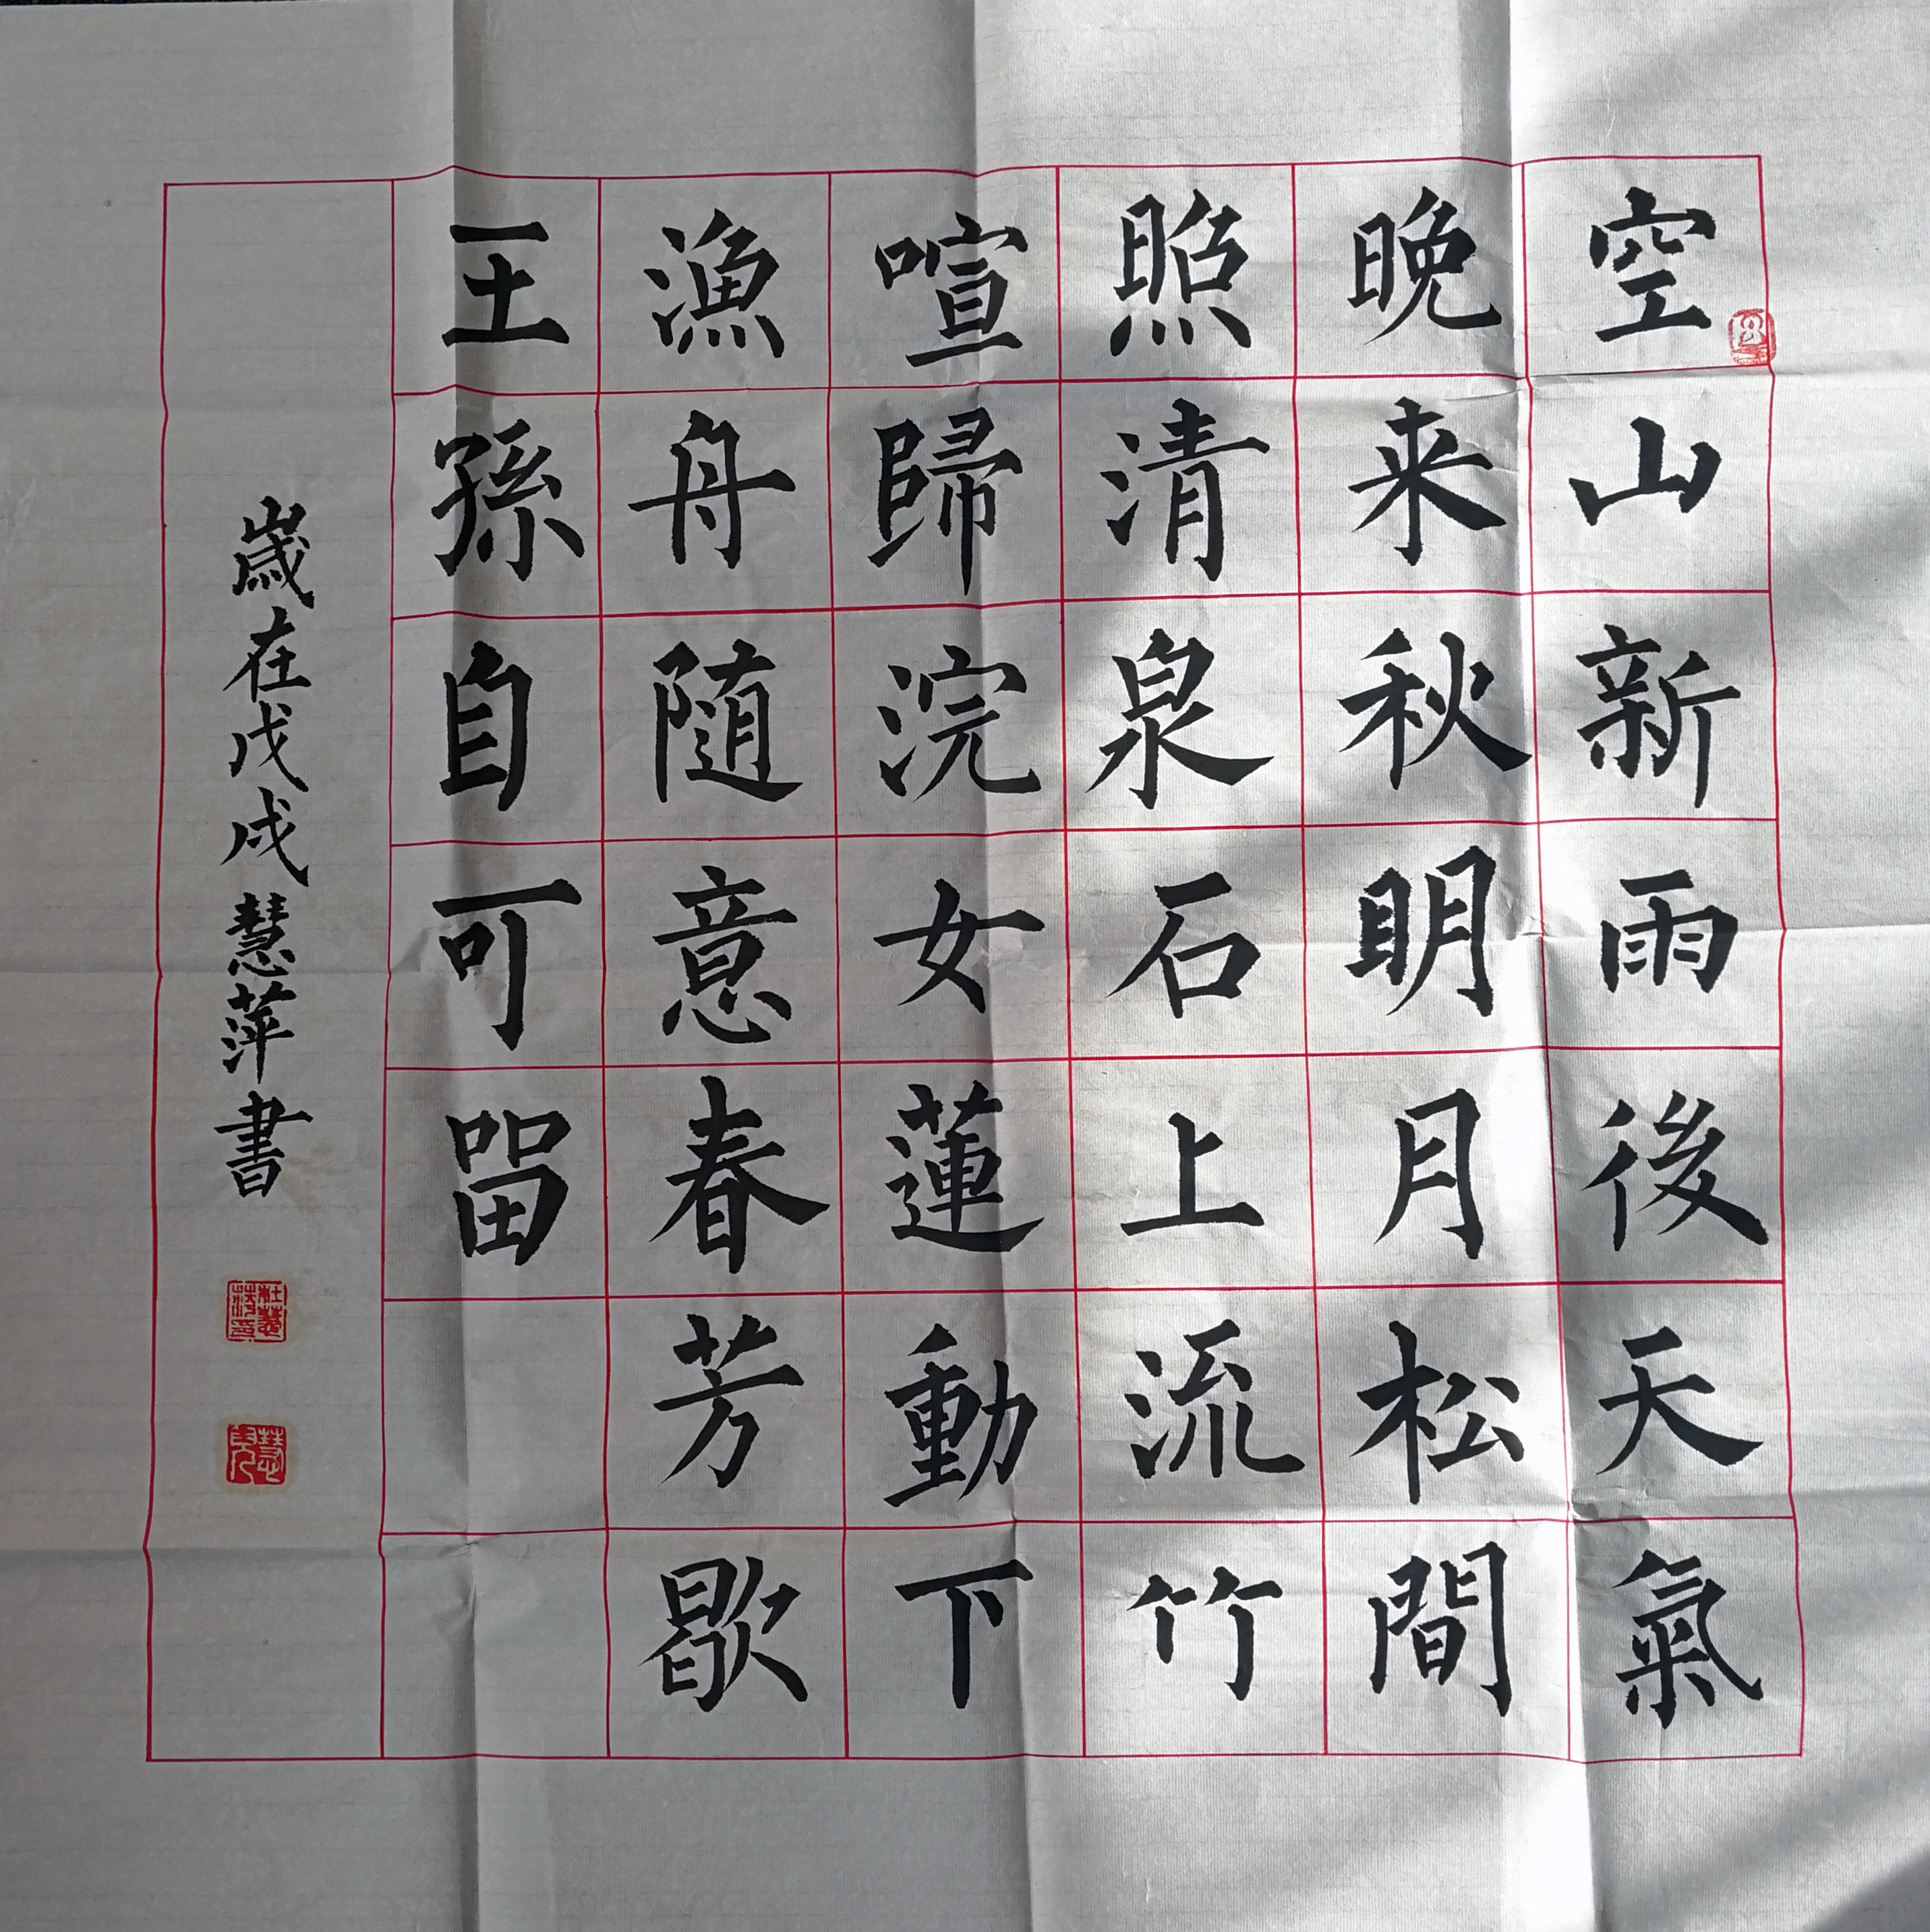 空山新雨後天氣
晚来秋明月松間
照清泉石上流竹
喧歸浣女蓮動下
漁舟随意春芳歇
王孫自可留
歲在戊戌慧萍書
杜慧萍印